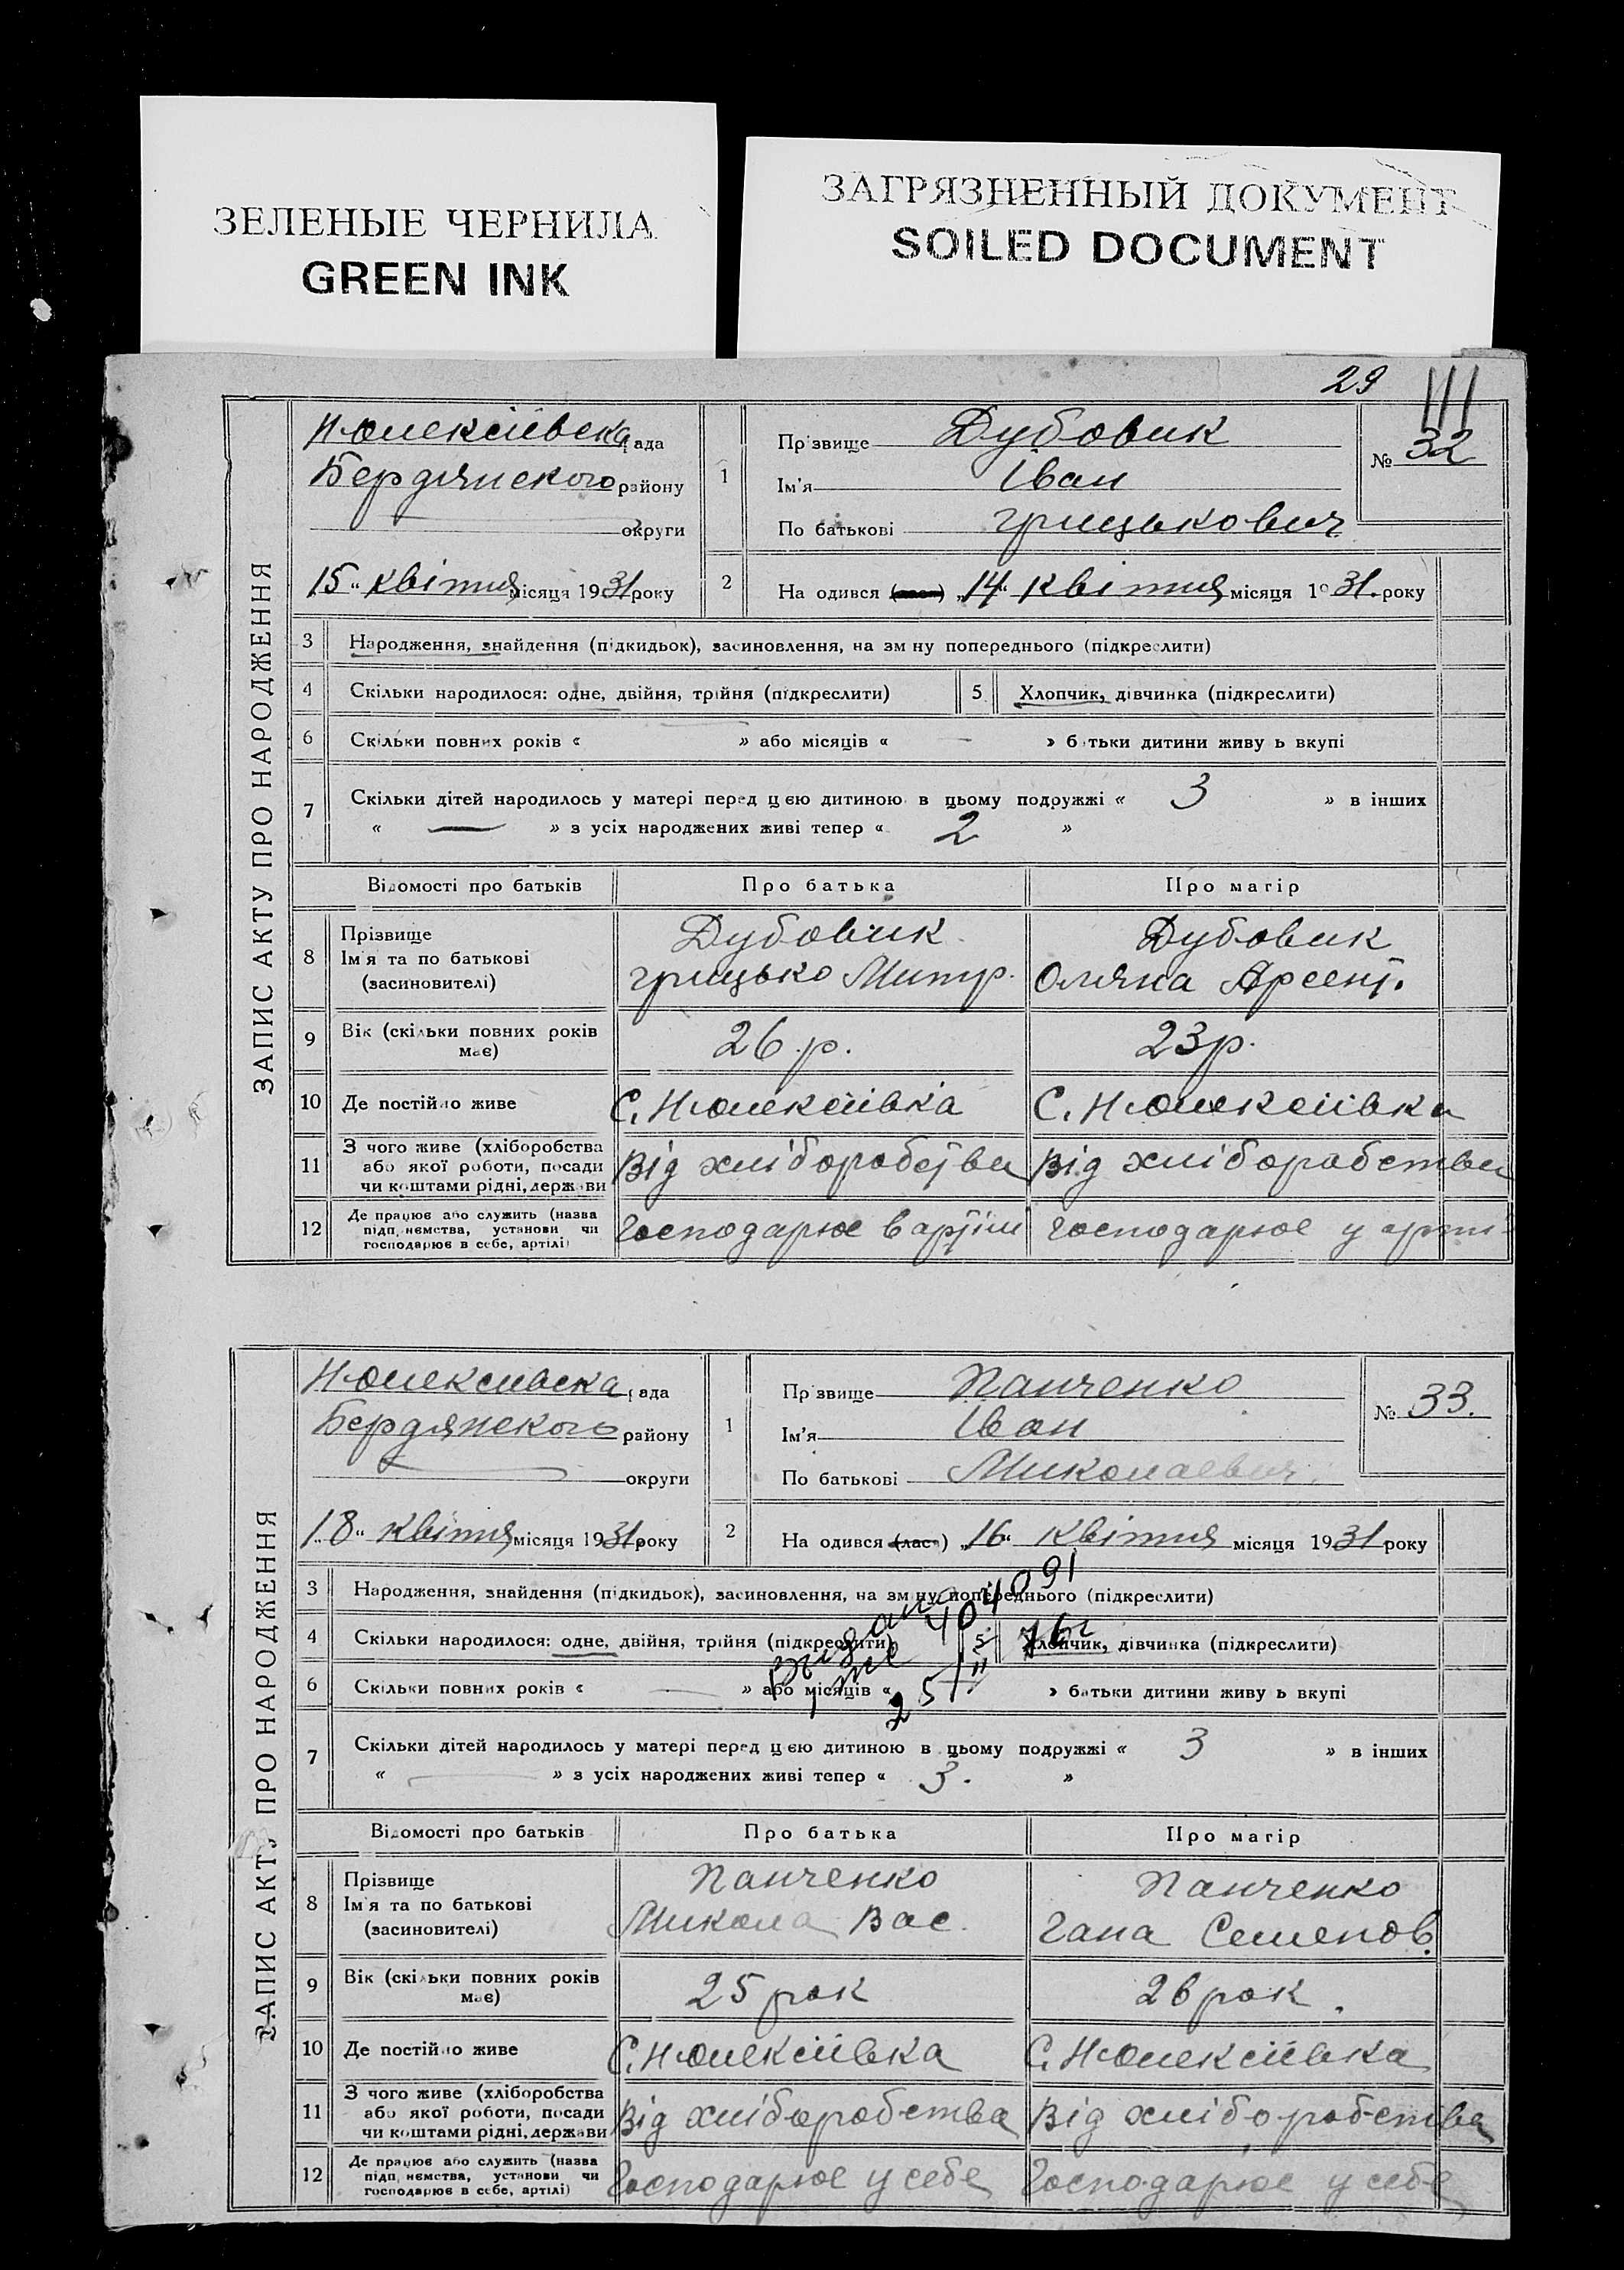 ЗЕЛЕНЫЕ ЧЕРНИЛА
GREEN INK
ЗАГРЯЗНЕННЫЙ ДОКУМЕНТ
SOILED DOCUMENT
29
III
ЗАПИС АКТУ ПРО НАРОДЖЕННЯ
Н-Олексіївська рада
Бердянського району
округи
15 "квітня місяця 1931 року
1
Прізвище Дубовик
Ім'я Іван
По батькові Грицькович
№ 32
2 Народився „14" квітня місяця 1931. року
3 Народження, знайдення (підкидьок), засиновлення, на зміну попереднього (підкреслити)
4 Скільки народилося: одне, двійня, трійня (підкреслити) 5 Хлопчик, дівчинка (підкреслити)
6 Скільки повних років « — » або місяців « — » батьки дитини живуть вкупі
7 Скільки дітей народилось у матері перед цією дитиною в цьому подружжі « 3 » в інших
« — » з усіх народжених живі тепер « 2 »
Відомості про батьків Про батька Про матір
8 Прізвище
Ім'я та по батькові
(засиновителі)
Дубовик
Грицько Митр.
Дубовик
Оляна Арсент.
9 Вік (скільки повних років
має)
26 р. 23 р.
10 Де постійно живе С. Н-Олексіївка С. Н-Олексіївка
11 З чого живе (хліборобства
або якої роботи, посади
чи коштами рідні, держави
Від хліборобства Від хліборобства
12 Де працює або служить (назва
підприємства, установи чи
господарює в себе, артілі)
Господарює в артіли господарює у арті
ЗАПИС АКТУ ПРО НАРОДЖЕННЯ
Н-Олексіївська рада
Бердянського району
округи
18 "квітня місяця 1931 року
1
Прізвище Панченко
Ім'я Іван
По батькові Миколаевич
№ 33.
2 Народився (лась) „16" квітня місяця 1931 року
3 Народження, знайдення (підкидьок), засиновлення, на зміну попереднього (підкреслити)
4 Скільки народилося: одне, двійня, трійня (підкреслити) 5 Хлопчик, дівчинка (підкреслити)
404091
6 Скільки повних років « — » або місяців « » батьки дитини живуть вкупі
7 Скільки дітей народилось у матері перед цією дитиною в цьому подружжі « 3 » в інших
« — » з усіх народжених живі тепер « 3. »
Відомості про батьків Про батька Про матір
8 Прізвище
Ім'я та по батькові
(засиновителі)
Панченко
Микола Вас.
Панченко
Гана Семенов.
9 Вік (скільки повних років
має)
25 рок 26 рок.
10 Де постійно живе С. Н-Олексіївка С. Н-Олексіївка
11 З чого живе (хліборобства
або якої роботи, посади
чи коштами рідні, держави
Від хліборобства Від хліборобства
12 Де працює або служить (назва
підприємства, установи чи
господарює в себе, артілі)
Господарює у себе Господарює у себе